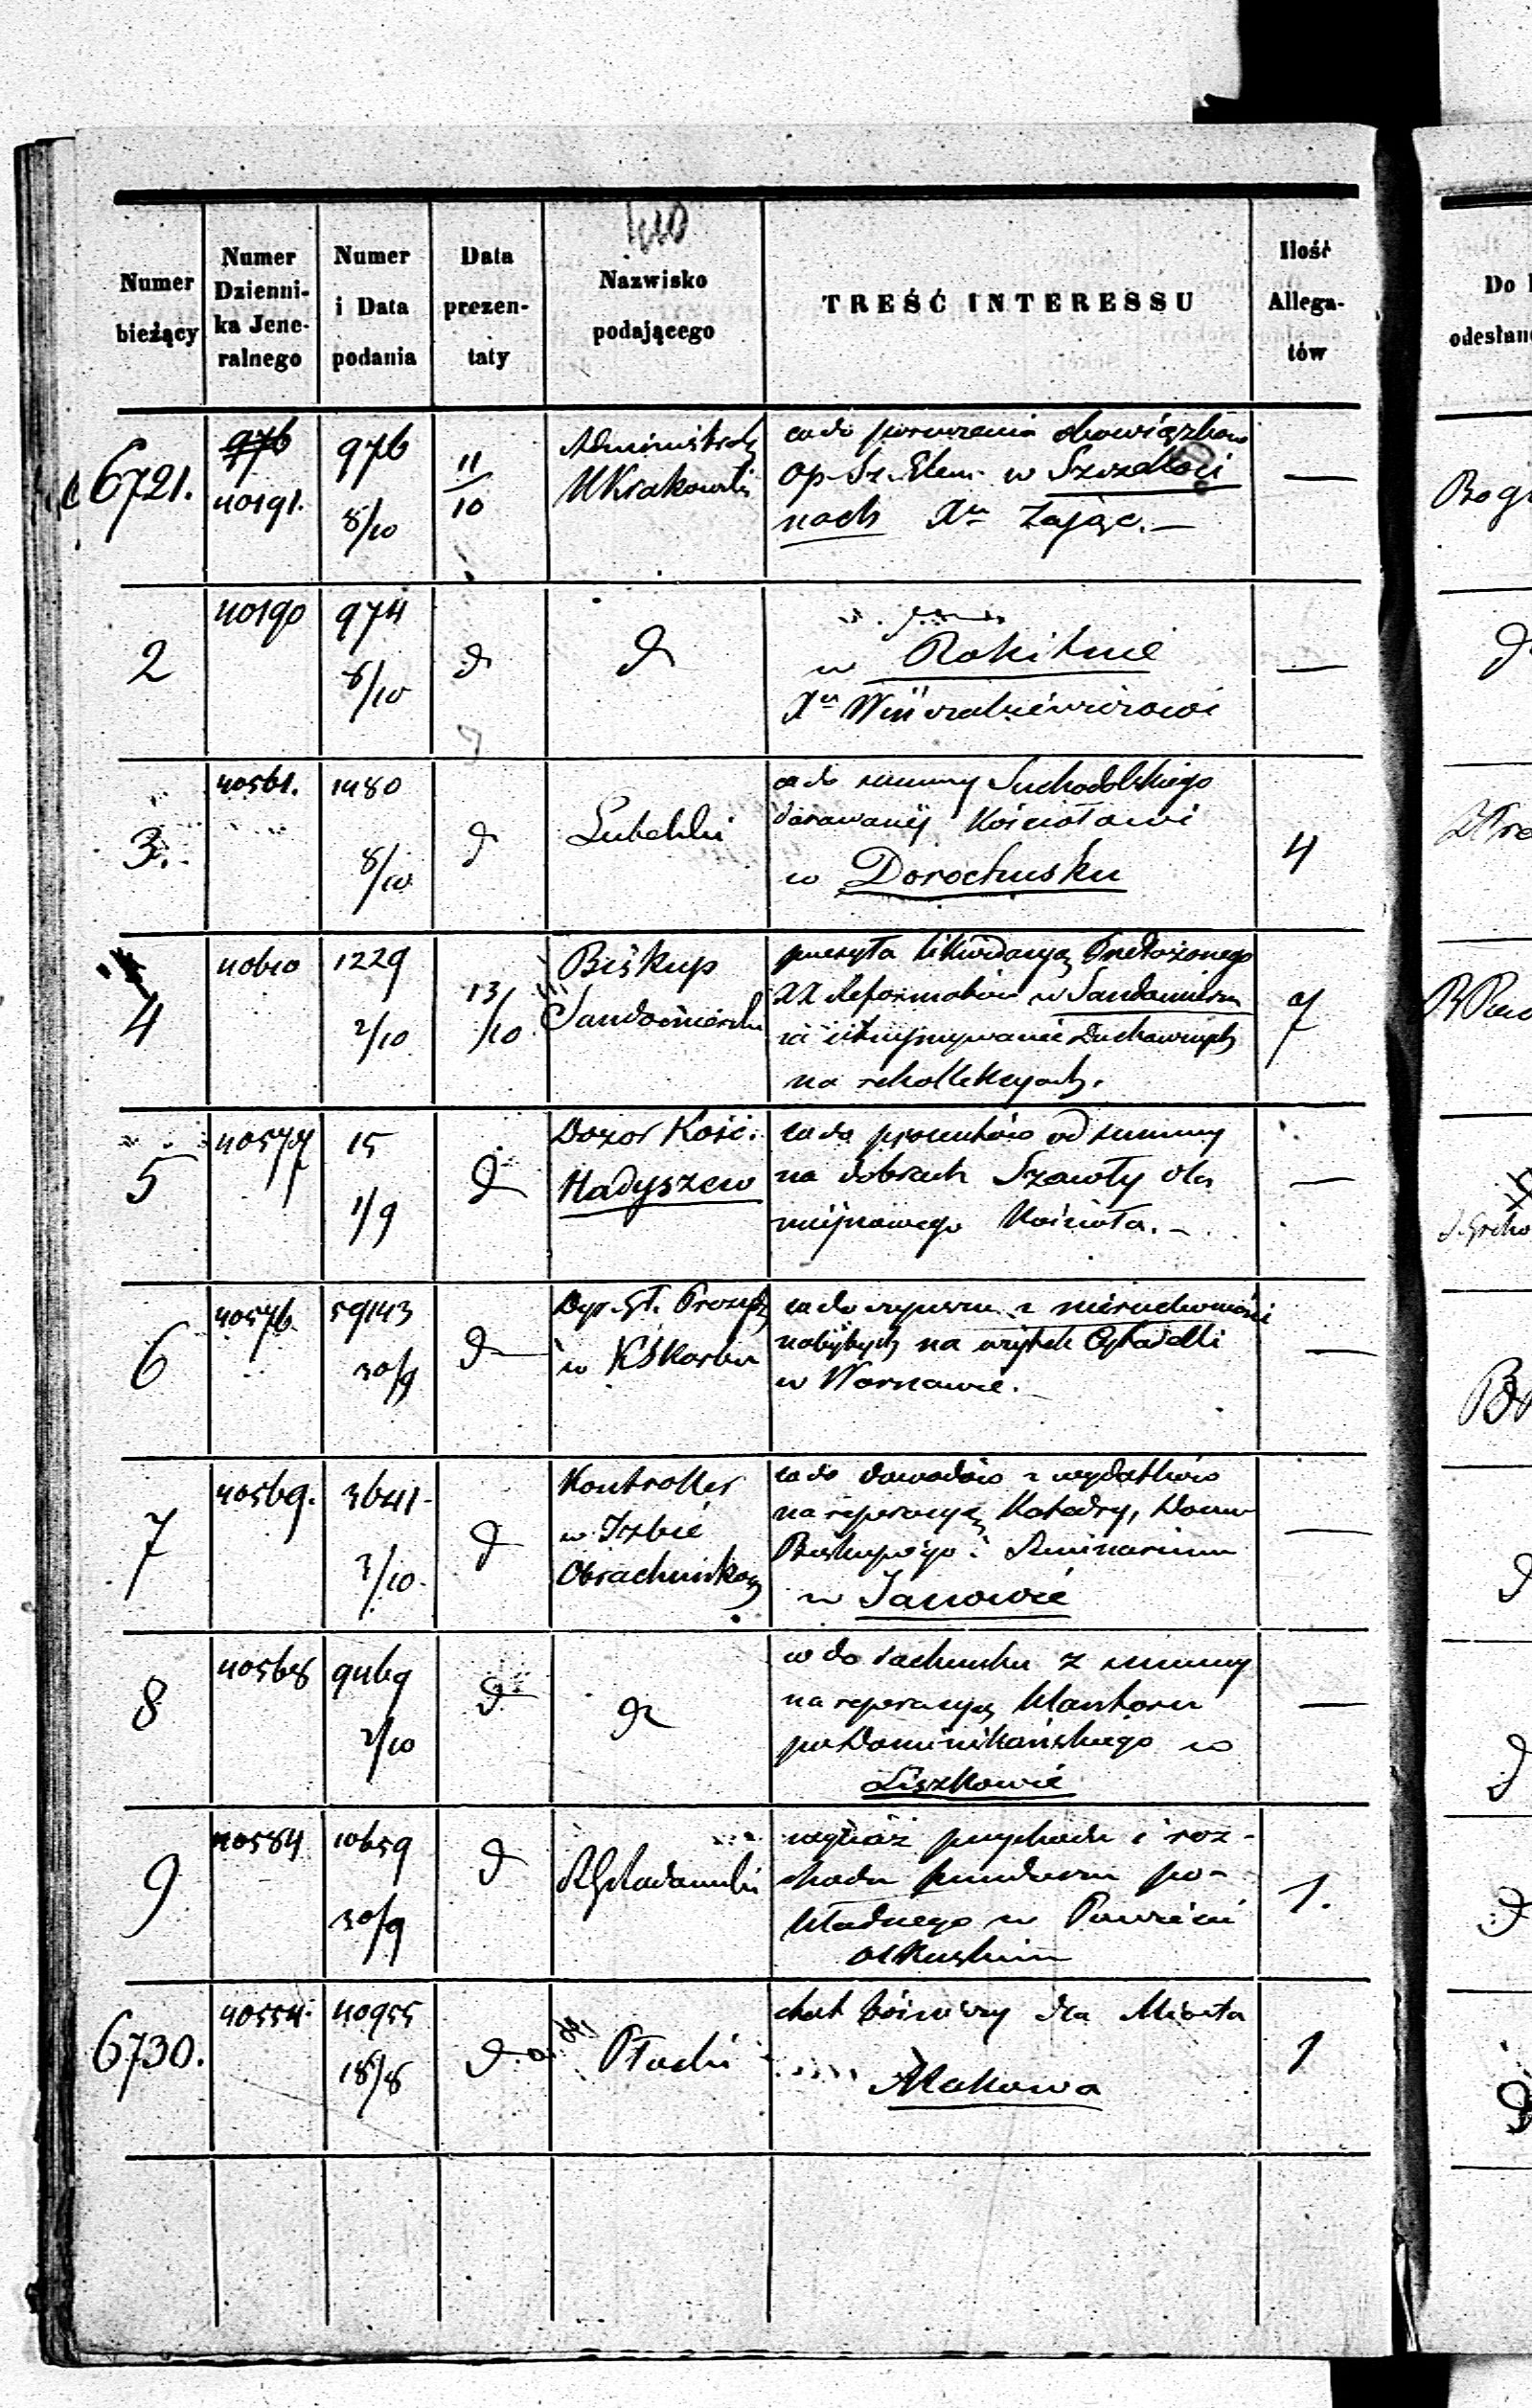 Numer bieżący
Numer Dzienni-
ka Jene-
ralnego
Numer i Data podania
Data prezen-
taty
Nazwisko podającego
TREŚĆ INTERESSU
Ilość Allega-
tów
Do
odesłan
6721.
976
40191.
976
8/10
11/10
co do poruczenia obowiązków
Op. Sz. Elem. w Szczekoci
nach Xu Zając.—
—
Bog
2
40190
974
8/10
d
d
w Rokitnie
—
d
3.
40561.
1480
8/10
d
Lubelski
co do summy Suchodolskiego
darowanéj Kościołowi
w Dorochusku
4
4
40610
1229
2/10
13/10
Biskup
Sandomierski
przesyła likwidacyą Przełożonego
XX Reformatów w Sandomierzu
za utrzymywanie Duchownych
na rekollekcyach.
7
5
40577
15
1/9
d
Dozor Kośc.
Hadyszew
co do procentów od summy
na dobrach Szawły dla
miejscowego Kościoła.—
—
6
40576
59143
30/9
d
w K Skarbu
co do czynszu z nieruchomości
nabytych na użytek Cytadelli
w Warszawie.
—
7
40569.
3641
3/10.
d
Kontroller
w Izbie
Obrachunkowej
co do dowodów z wydatków
na reperacyą Katedry, Domu
Biskupiego i Seminarium
w Janowie
—
d
8
40568
9469
2/10
d
d
co do rachunku z summy
na reperacyą Klasztoru
po Dominikańskiego w
Liszkowie
—
d
9
40584
10659
30/9
d
RG Radomski
wykaz przychodu i roz-
chodu funduszu po-
kładnego w Powiecie
Olkuskim
1.
d
6730.
40554.
40955
18/8
d
Płocki
etat bóżniczy dla Miasta
Makowa
1
d